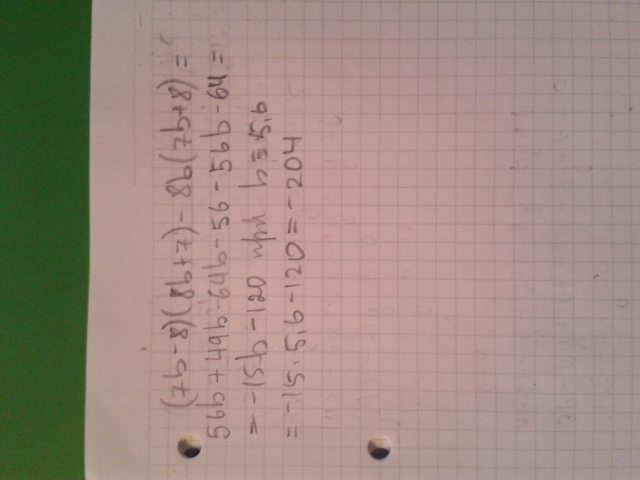 (7b-8)(8b+7)-8b(7b+8)=
56b+49b-64b-56-56b-64=
=-15b-120 при b=5,6
=-15·5,6-120=-204